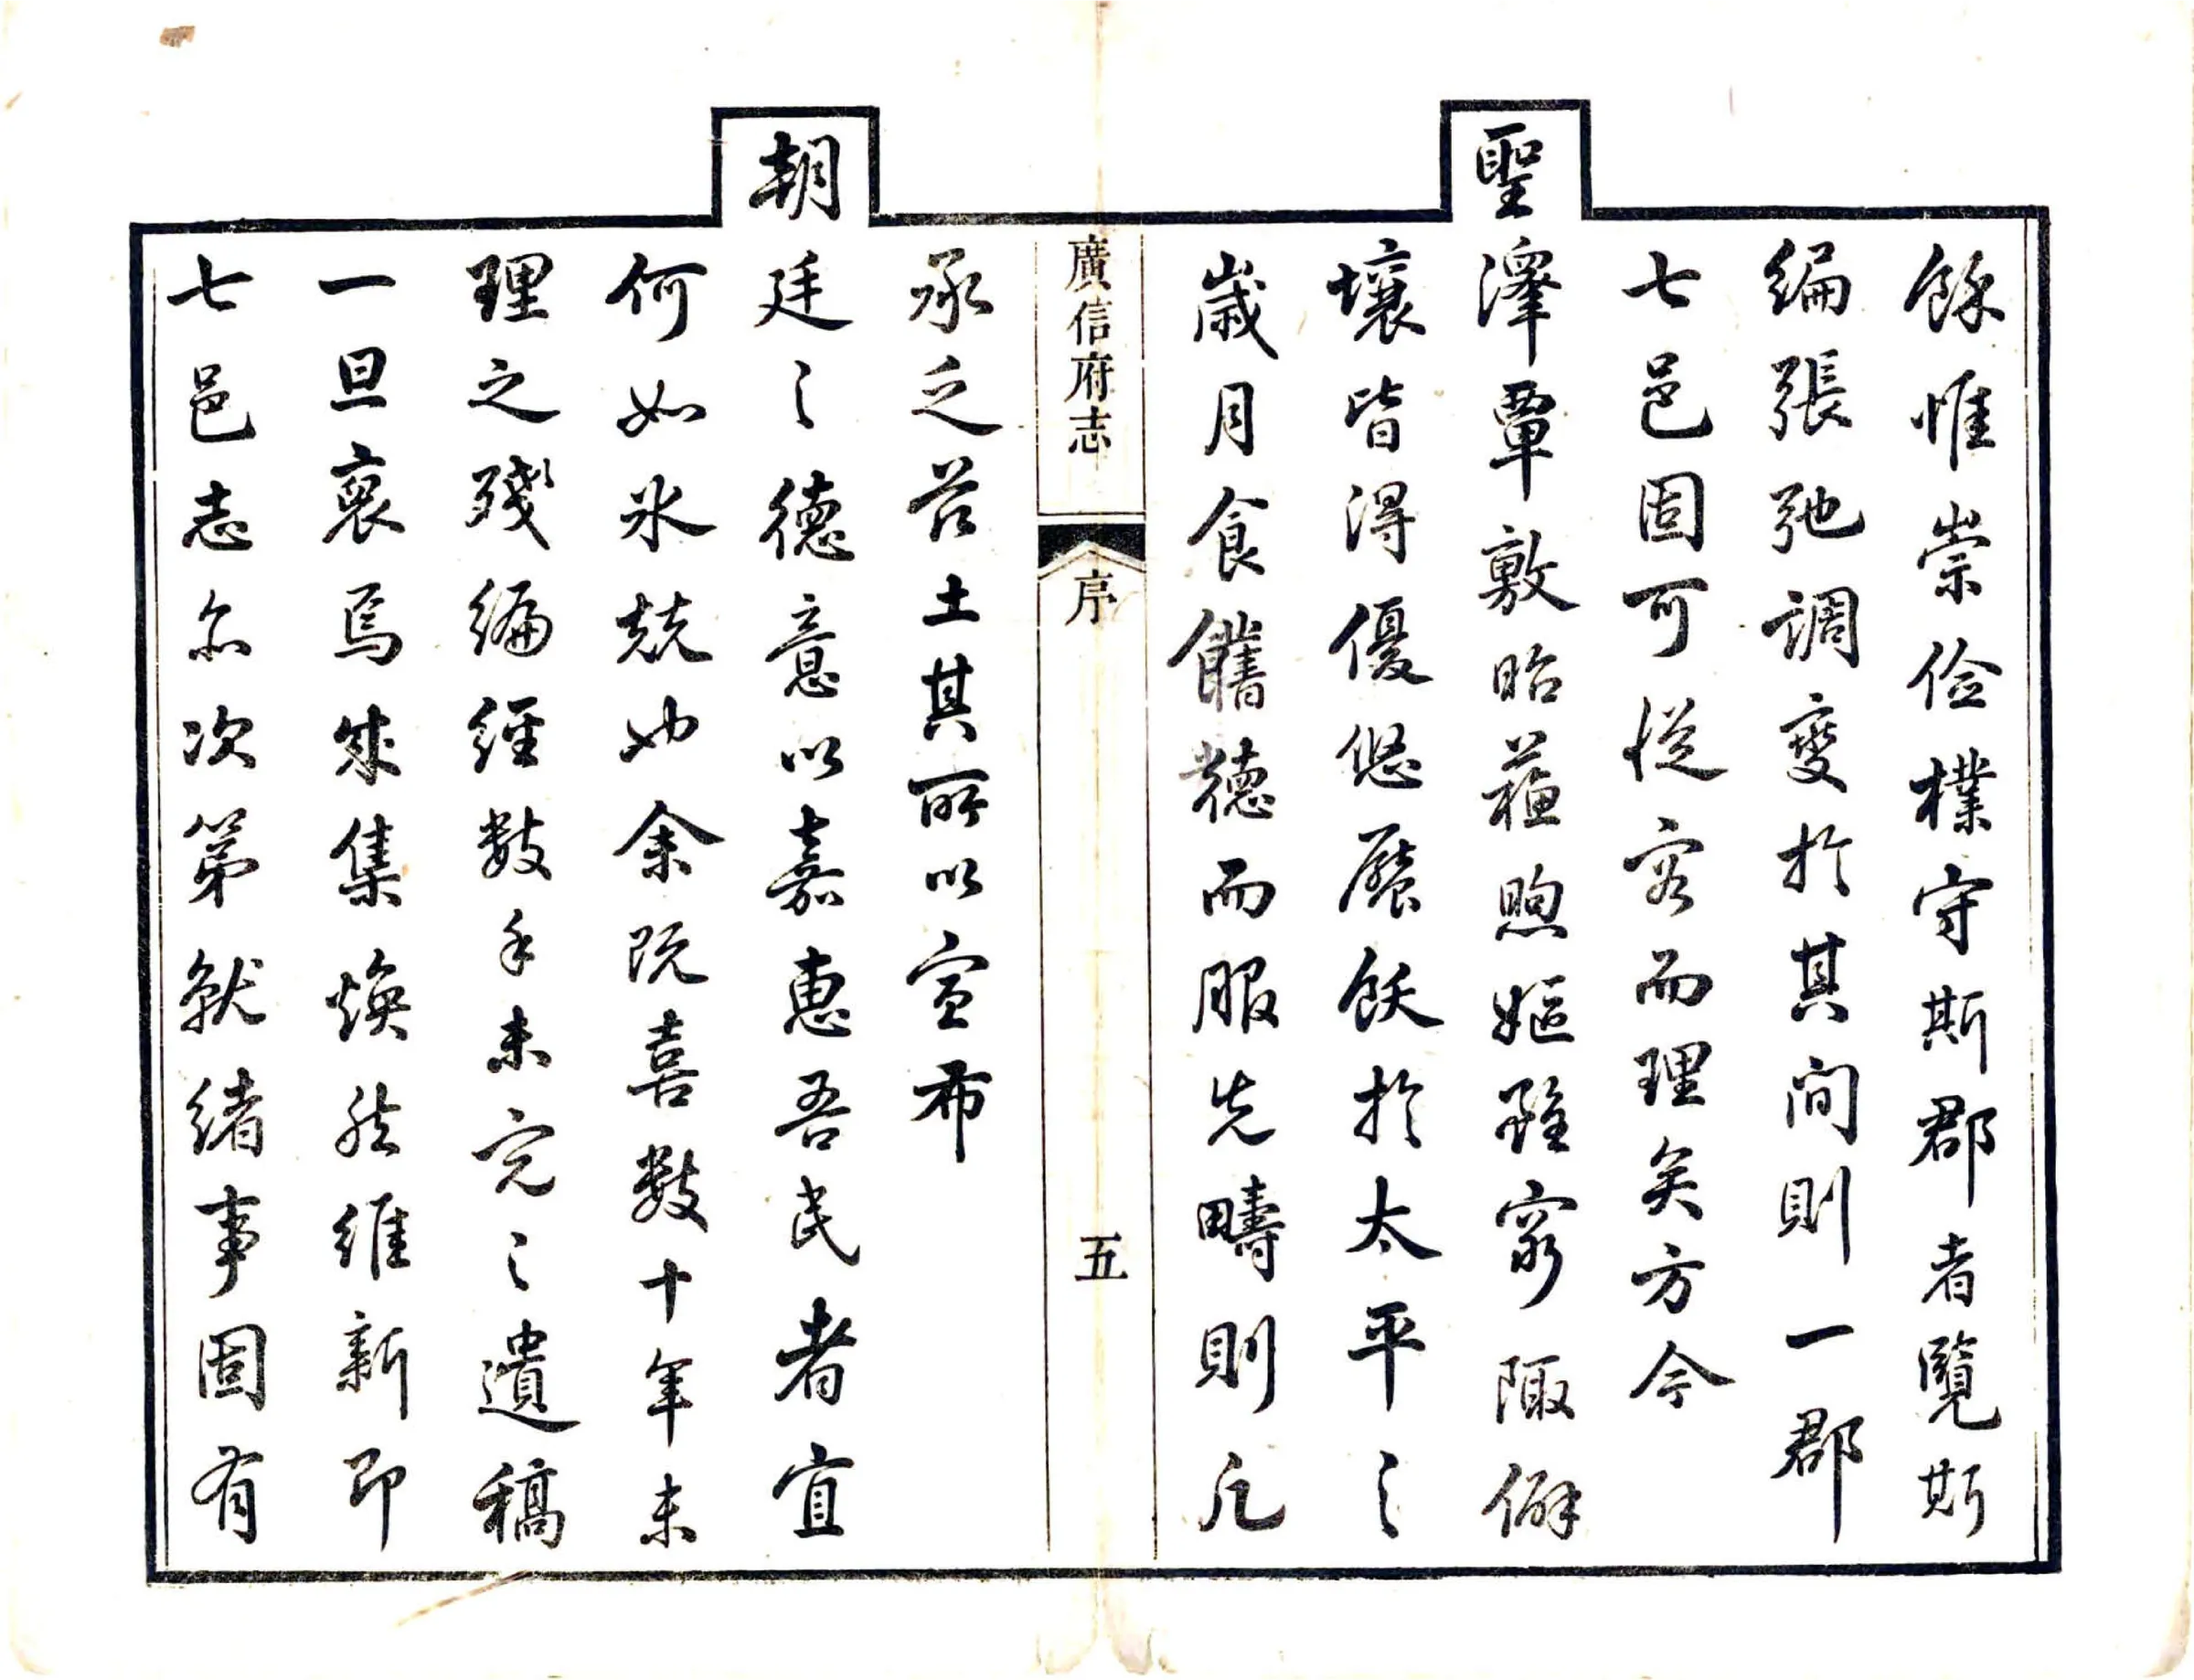 餘惟崇儉樸守斯郡者覽斯
編張弛調變於其間則一郡
七邑固可從容而理矣方今
聖澤覃敷昭蘓煦嫗雖窮陬僻
壤皆得優悠饜飫於太平之
歲月食舊德而服先疇則凡
廣信府志
序
五
承乏茲土其所以宣布
朝廷之德意以嘉惠吾民者宜
何如氷兢也余既喜數十年未
理之殘編經數手未完之遺稿
一旦裒焉成集煥然維新即
七邑志亦次第就緒事固有